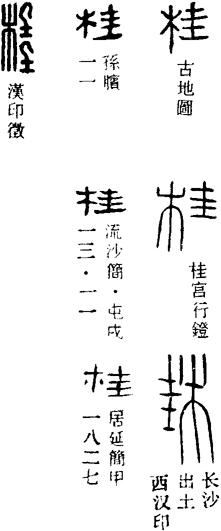 桂
古地圖
桂
桂宫行鐙
桂
长沙
出土
西汉印
桂
孫臏
一一
桂
流沙簡·屯戍
一三·一一
桂
居延簡甲
一八二七
桂
漢印徵